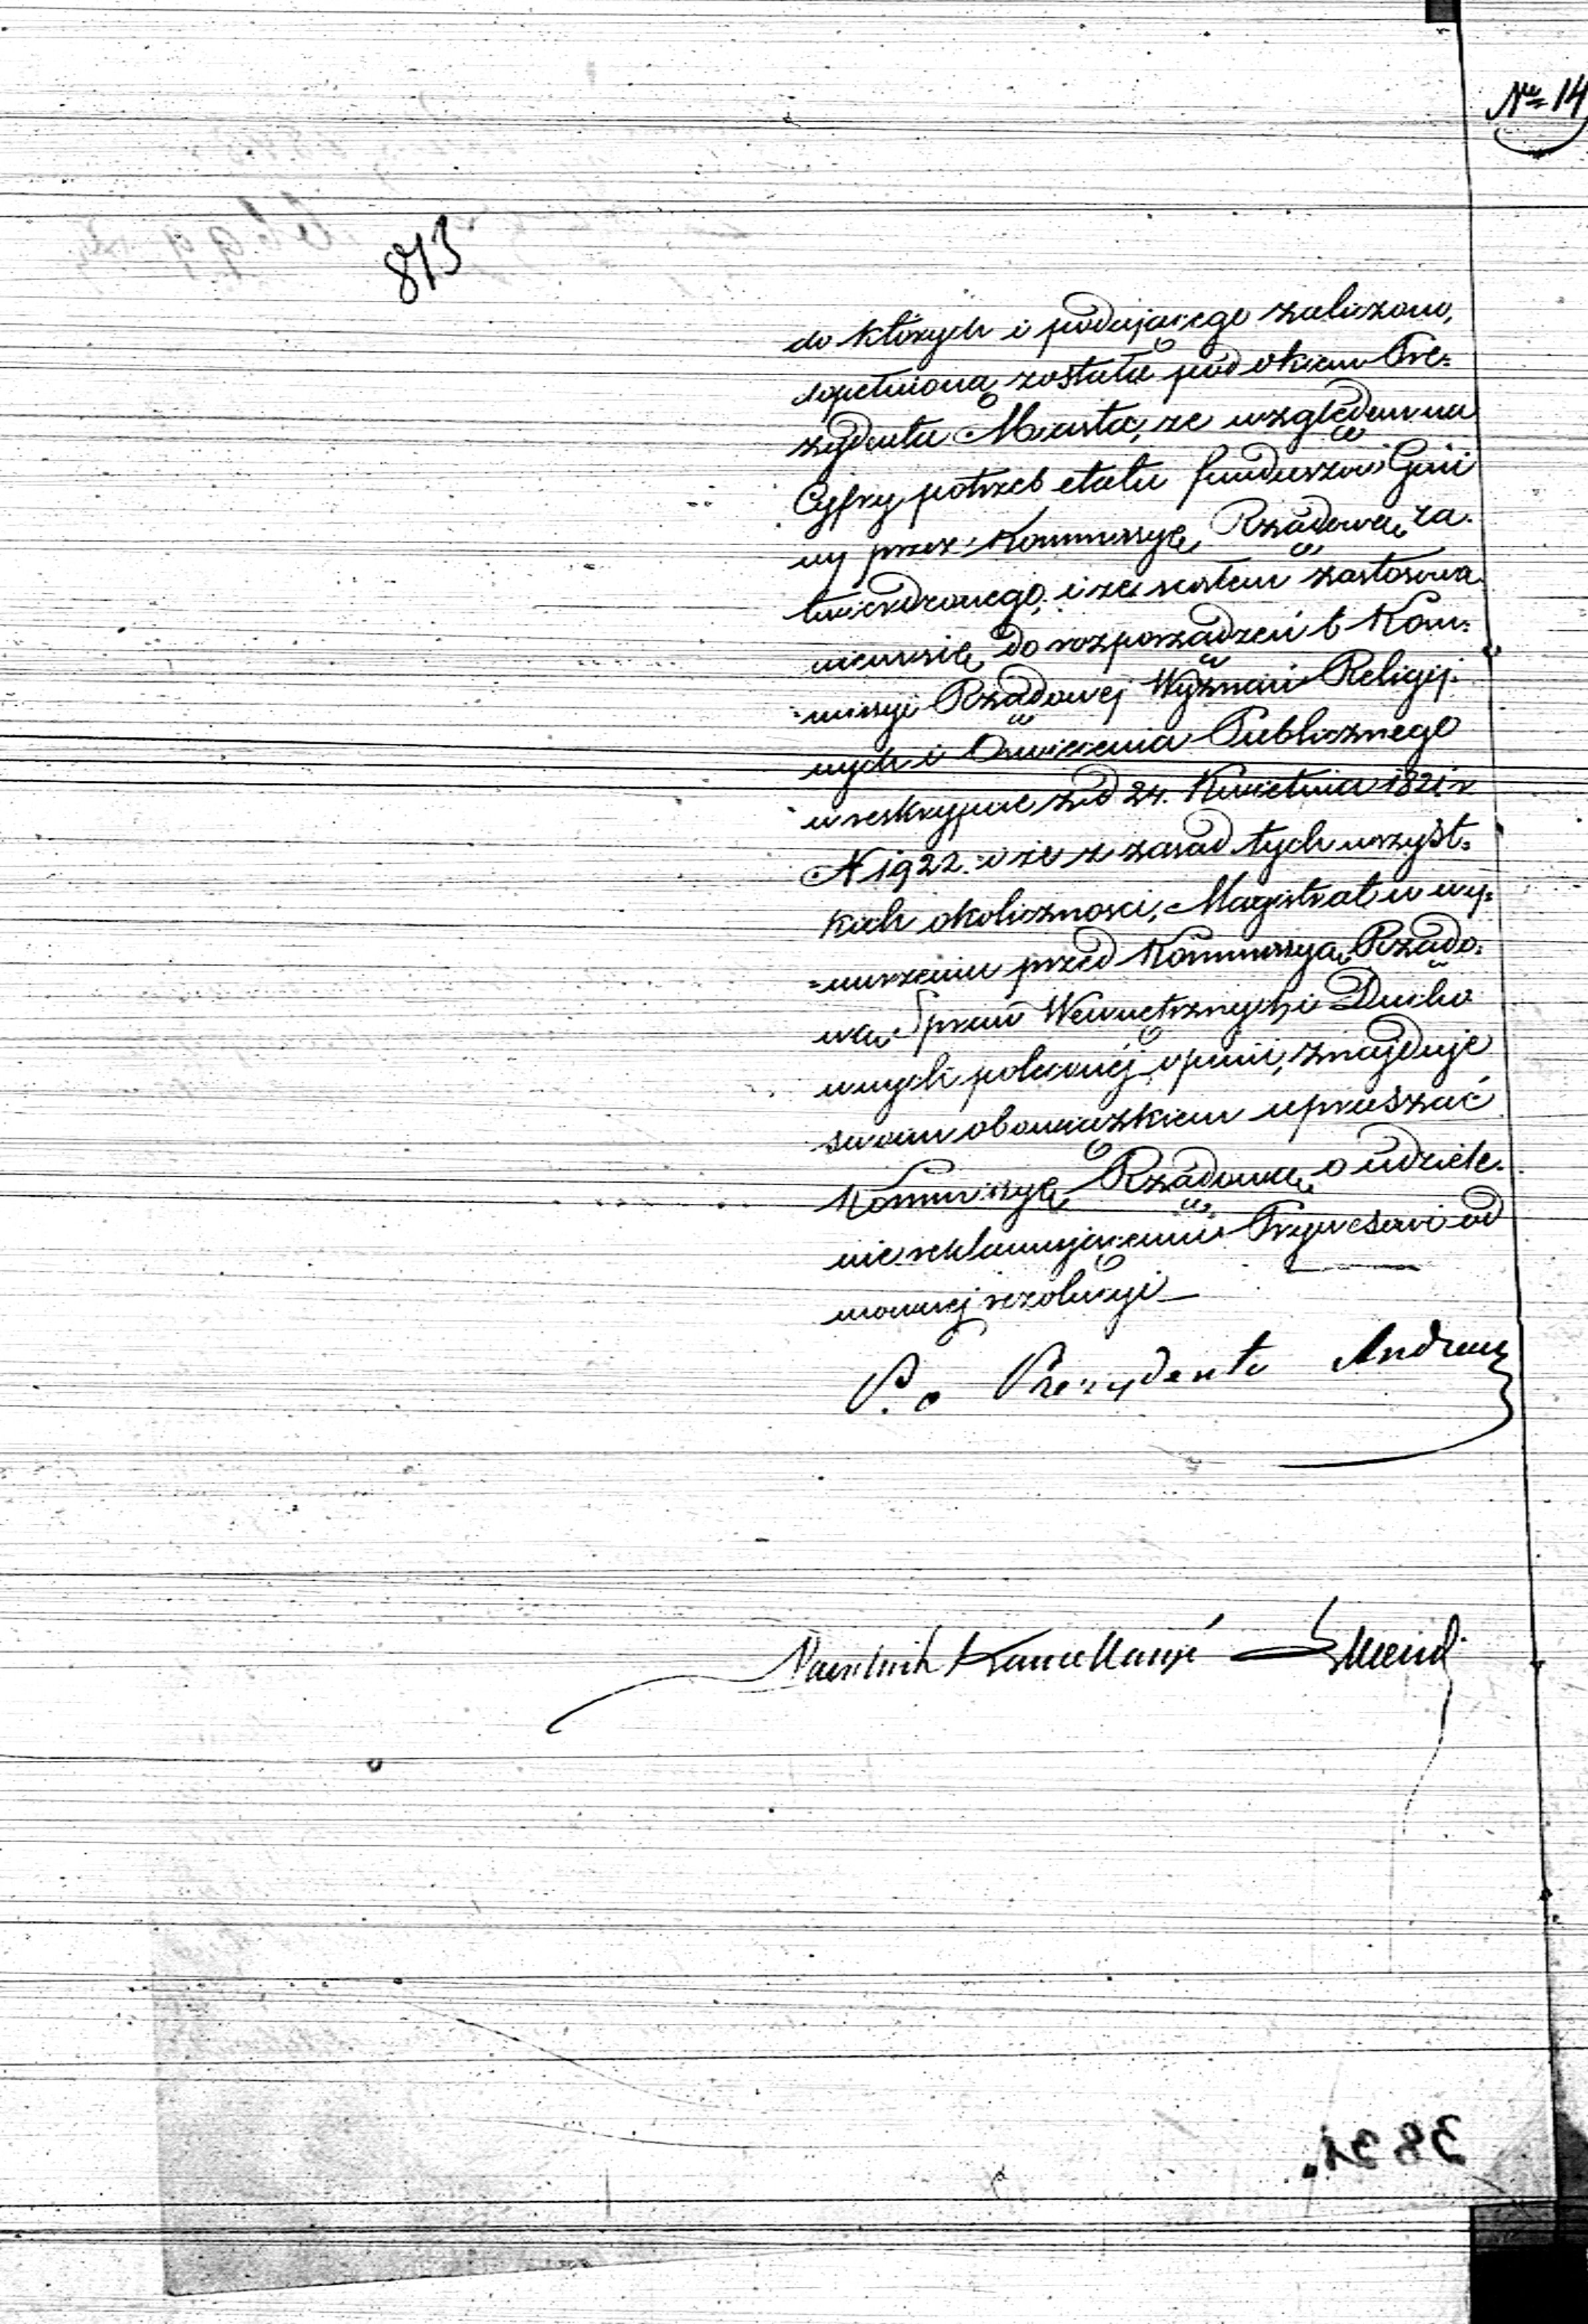 No 14
873
do których i podającego zaliczono,
dopełnioną została pod okiem Pre-
zydenta Miasta, ze względem na
Cyfry potrzeb etatu funduszów Gmi
ny przez Kommissyę Rządową za-
twierdzonego, i ze
niem się do rozporządzeń b. Kom-
missyi Rządowej Wyznań Religij-
nych i Oświecenia Publicznego
w reskrypcie z d 24. Kwietnia 1821 r
N 1922. i że z zasad tych wszyst-
kich okoliczności, Magistrat w wy-
nurzeniu przed Kommissyą Rządo-
wą Spraw Wewnętrznych i Ducho
wnych poleconéj opinii, znajduje
swoim obowiązkiem upraszać
Kommissyę Rządową o udziele-
nie reklamującemu Prywesowi od
mownej rezolucyi
P. o Prezydenta Andrau
Naczelnik Kancellaryi
3831.